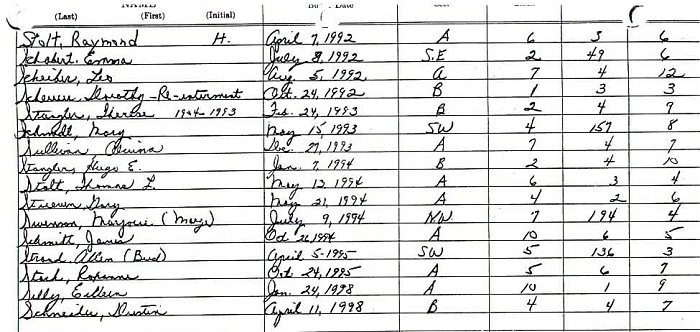 NAME Date
(Last) (First) (Initial)
Stolt, Raymond H. April 7, 1992 A 6 3 6
Schobert, Emma July 8, 1992 S.E 2 49 6
Scheiber, Leo Aug. 5, 1992 A 7 4 12
Dorothy - Re-interment Oct. 24, 1992 B 1 3 3
Stangler, Therese 1904-1993 Feb. 24, 1993 B 2 4 9
Schmidt, Mary May 15, 1993 SW 4 157 8
Sullivan, Dec. 27, 1993 A 7 4 7
Stangler, Hugo E. Jan. 7, 1994 B 2 4 10
Stolt, Thomas L. May 12, 1994 A 6 3 4
Gary May 21, 1994 A 4 2 6
Swenson, Marjorie (Marge) July 9, 1994 NW 7 194 4
Schmitt, James Oct 26, 1994 A 10 6 5
Strand, Allen (Bud) April 5-1995 SW 5 136 3
Stach, Roxanne Oct 24, 1995 A 5 6 7
Selly, Eileen Jan. 24, 1998 A 10 1 9
Schneider, Dustin April 11, 1998 B 4 4 7